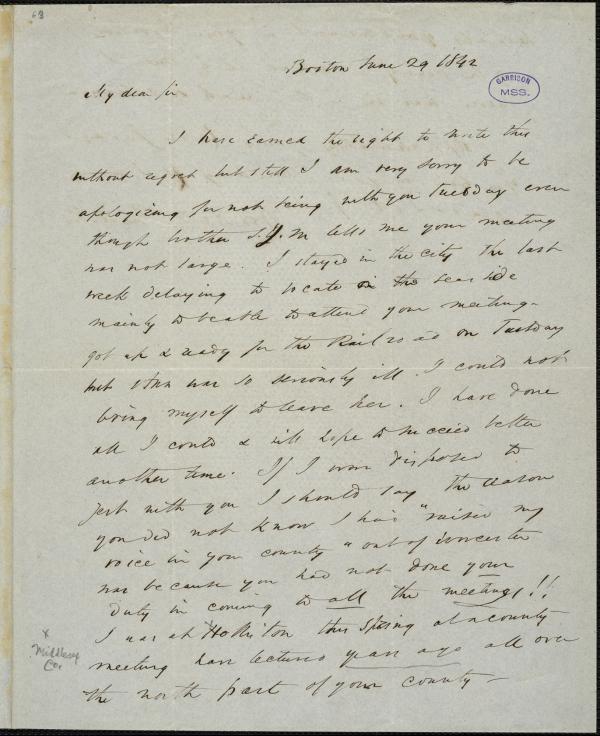 68
Boston June 29 1842
GARRISON
MSS.
My dear Sir
I have earned the right to write this
without regret but still I am very sorry to be
apologizing for not being with you Tuesday even
though brother S.J.M tells me your meeting
was not large. I stayed in the city the last
week delaying to locate on the sea side
mainly to be able to attend your meeting-
got up & ready for the Rail road on Tuesday
but Ann was so seriously ill. I could not
bring myself to leave her. I have done
all I could & will hope to succeed better
another time. If I were disposed to
jest with you I should say the reason
you did not know I had "raised my
voice in your county" out of Worcester
was because you had not done your
duty in coming to all the meetings!!
I was at Holliston this Spring at a county
meeting have lectured years ago all over
the north part of your county -
x
Middlesex
Co.